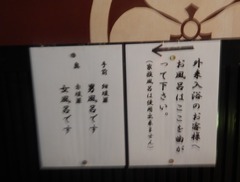 外来入浴のお客様へ
お風呂はここを曲が
って下さい。
(家族風呂は使用出来ません)
手前
男風呂です
奥
女風呂です